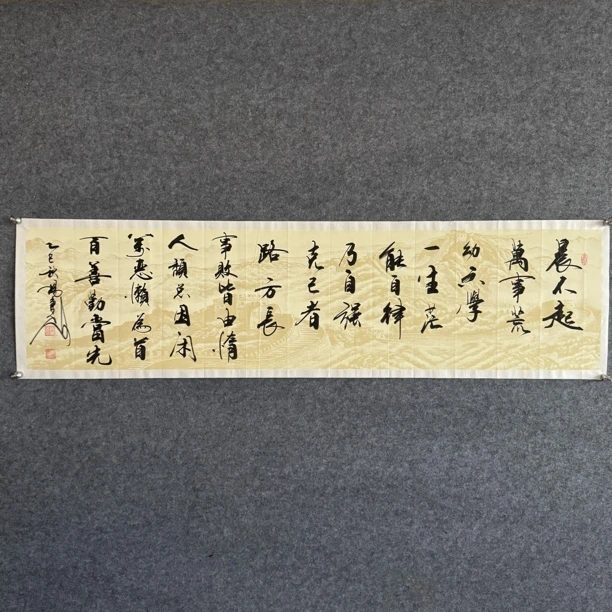 晨不起
萬事荒
幼不學
一生茫
能自律
乃自強
克己者
路方長
事敗皆由惰
人頹只因閑
萬惡懶為首
百善勤當先
乙巳秋楊